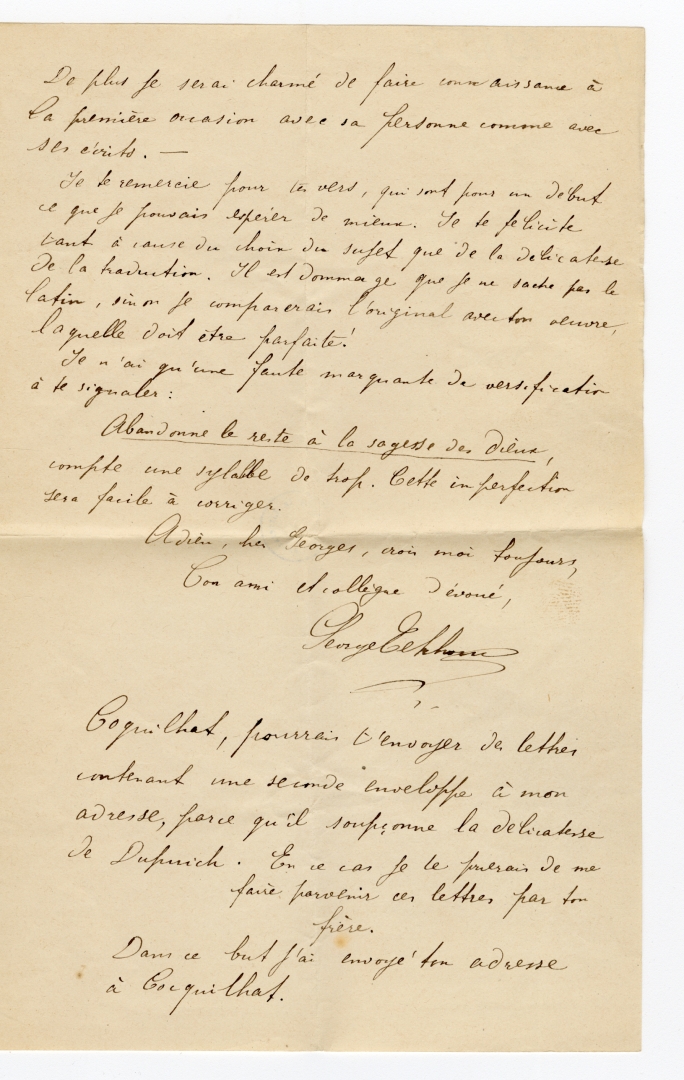 De plus je serai charmé de faire connaissance à
la première occasion avec sa personne comme avec
ses écrits. —
Je te remercie pour tes vers, qui sont pour un début
ce que je pouvais espérer de mieux. Je te félicite
tant à cause du choix du sujet que de la délicatesse
de la traduction. Il est dommage que je ne sache pas le
latin, sinon je comparerais l'original avec ton oeuvre,
laquelle doit être parfaite!
Je n'ai qu'une faute marquante de versification
à te signaler:
Abandonne le reste à la sagesse des dieux,
compte une syllabe de trop. Cette imperfection
sera facile à corriger.
Adieu, cher Georges, crois moi toujours,
Ton ami et collègue dévoué,
George Eekhoud
Coquilhat, pourrais t'envoyer des lettres
contenant une seconde enveloppe à mon
adresse, parce qu'il soupçonne la délicatesse
de Dupuich. En ce cas je te prierais de me
faire parvenir ces lettres par ton
frère.
Dans ce but j'ai envoyé ton adresse
à Cocquilhat.